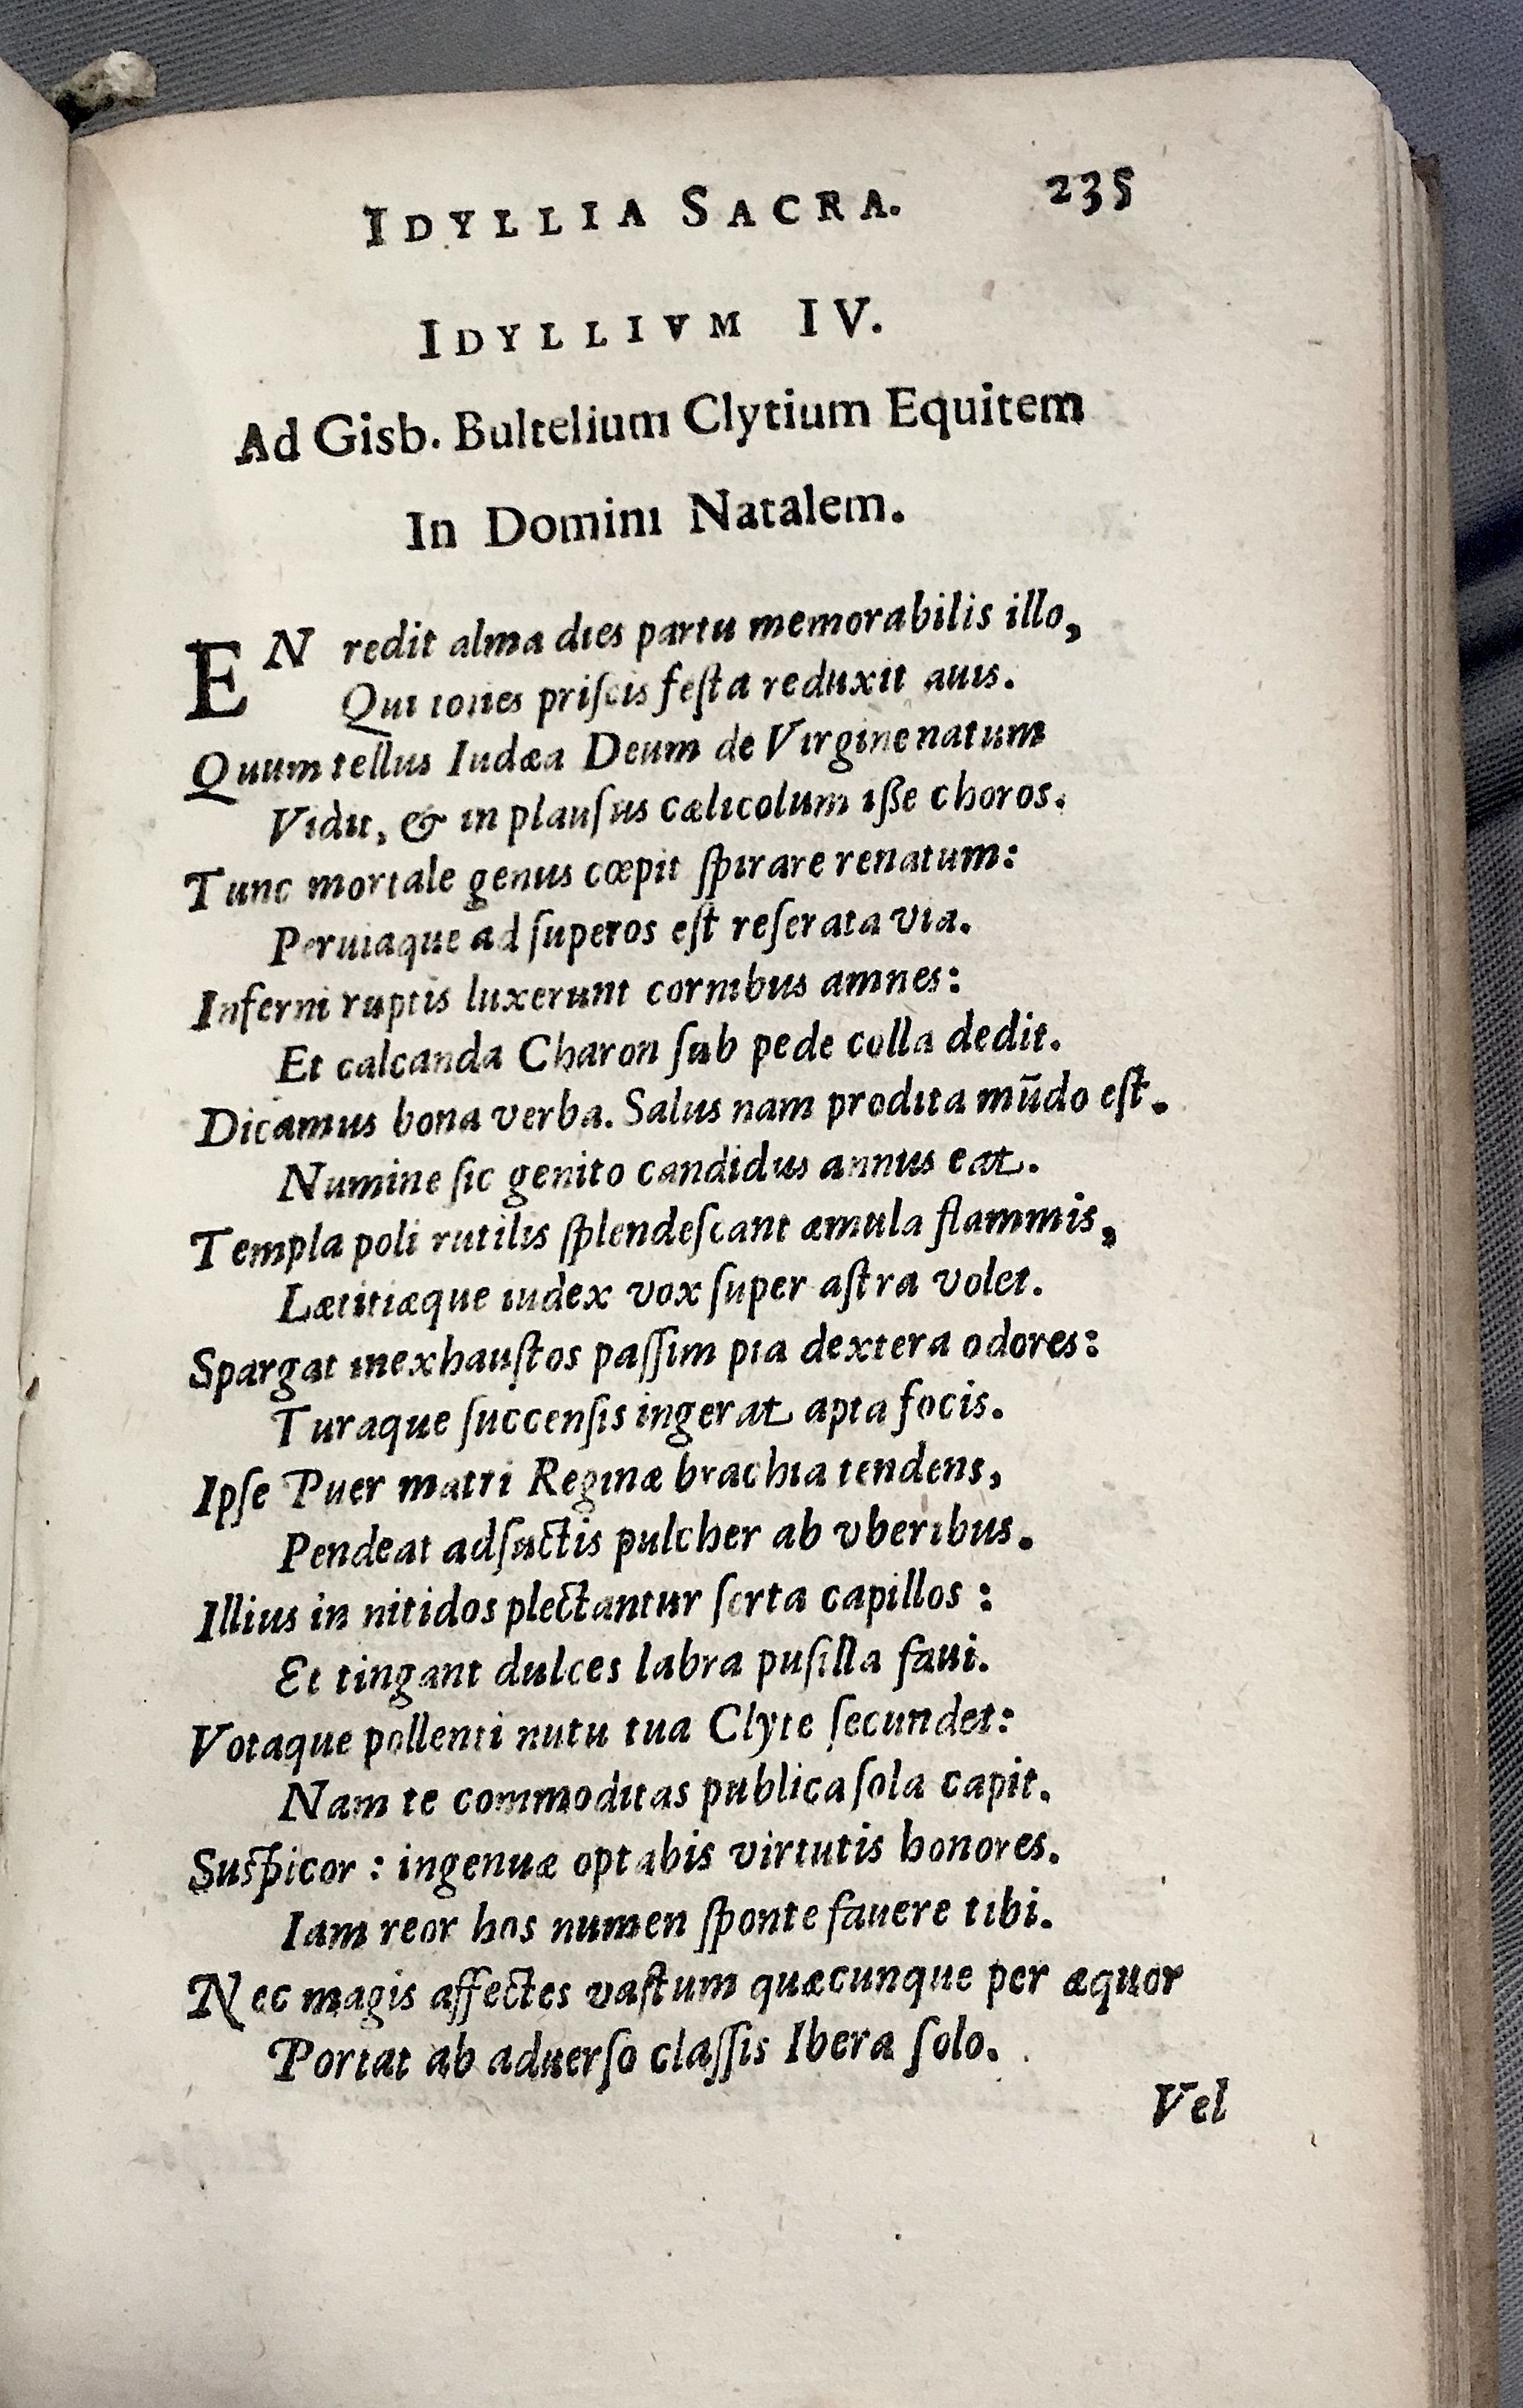 IDYLLIA SACRA. 235
IDYLLIVM IV.
Ad Gisb. Bultelium Clytium Equitem
In Domini Natalem.
EN redit alma dies partu memorabilis illo,
Qui toties priſcis feſta reduxit auis.
Quum tellus Iudæa Deum de Virgine natum
Vidit, & in plauſus cælicolum iſſe choros.
Tunc mortale genus cœpit ſpirare renatum:
Peruiaque ad ſuperos eſt reſerata via.
Inferni ruptis luxerunt cornibus amnes:
Et calcanda Charon ſub pede colla dedit.
Dicamus bona verba. Salus nam prodita mūdo eſt.
Numine ſic genito candidus annus eat.
Templa poli rutilis ſplendeſcant æmula flammis,
Lætitiæque iudex vox ſuper aſtra volet.
Spargat inexhauſtos paſſim pia dextera odores:
Turaque ſuccenſis ingerat apta focis.
Ipſe Puer matri Reginæ brachia tendens,
Pendeat adſuctis pulcher ab vberibus.
Illius in nitidos plectantur ſerta capillos :
Et tingant dulces labra puſilla faui.
Votaque pollenti nutu tua Clyte ſecundet:
Nam te commoditas publica ſola capit.
Suſpicor : ingenuæ optabis virtutis honores.
Iam reor hos numen ſponte fauere tibi.
Nec magis affectes vaſtum quæcunque per æquor
Portat ab aduerſo claſſis Ibera ſolo.
Vel